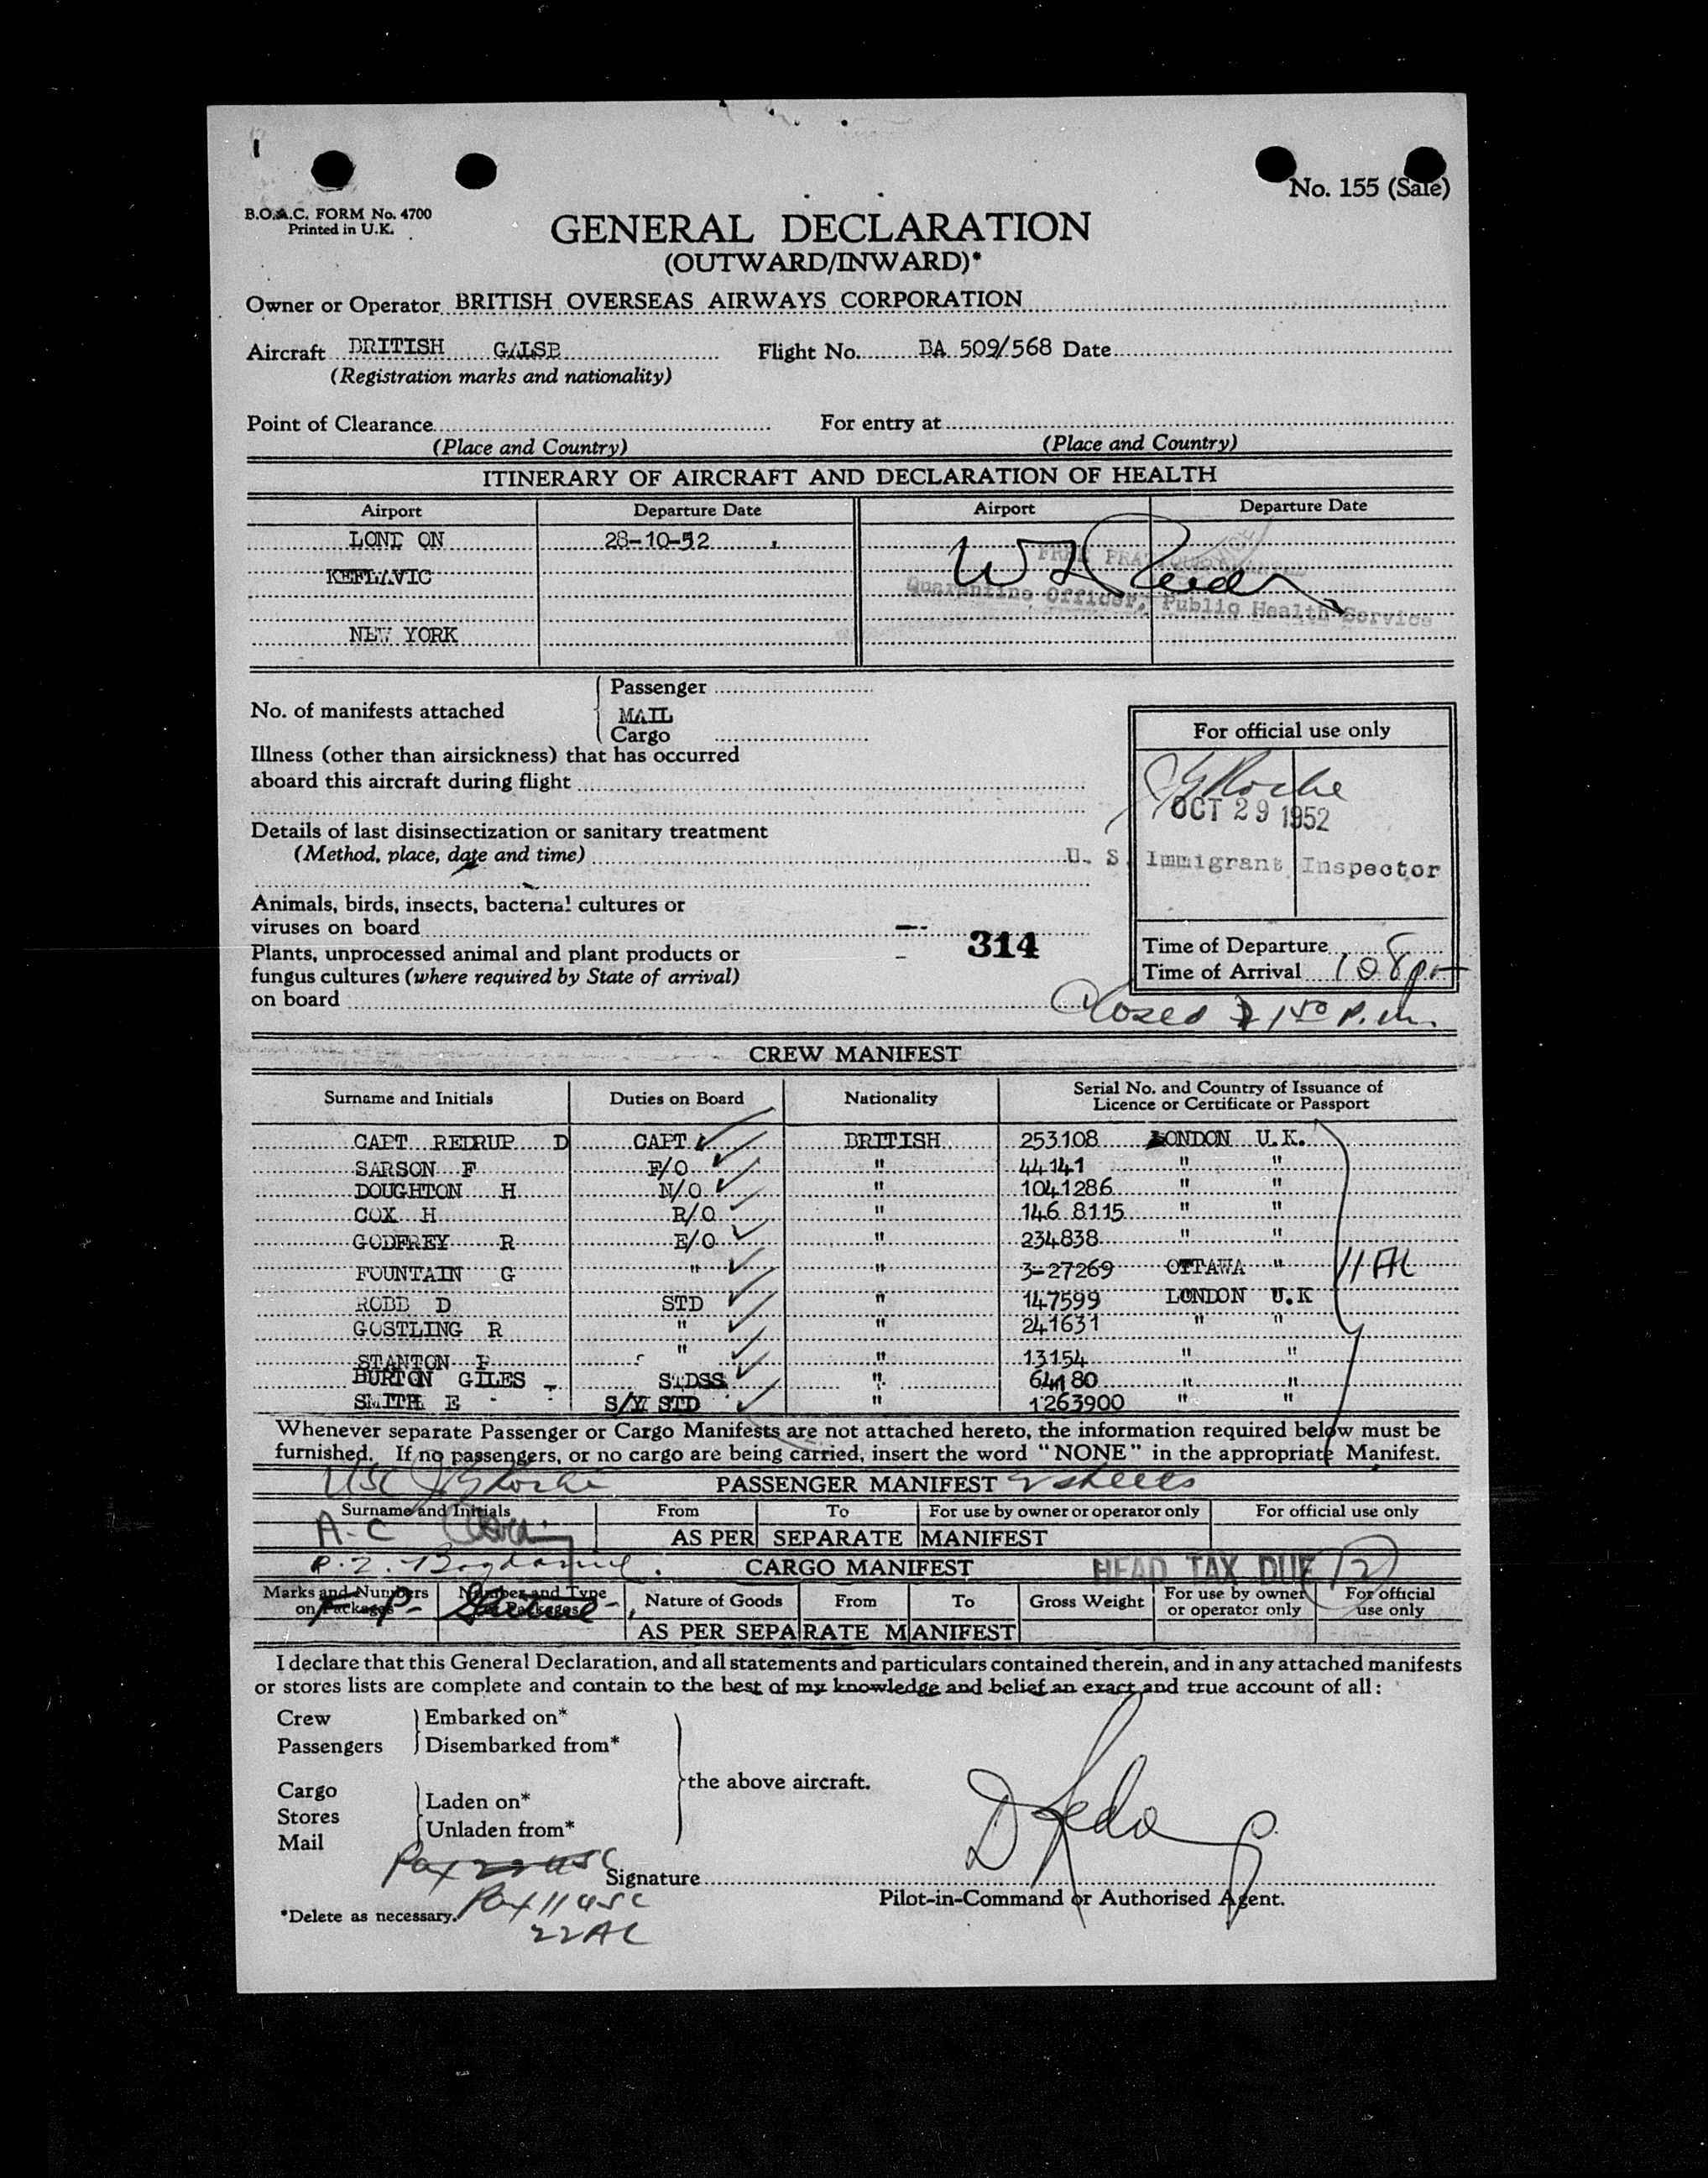 No. 155 (Sale)
B.O.A.C. FORM No. 4700
Printed in U.K.
GENERAL DECLARATION
(OUTWARD/INWARD)*
Owner or Operator BRITISH OVERSEAS AIRWAYS CORPORATION
Aircraft BRITISH GALSB Flight No. BA 509/568 Date
(Registration marks and nationality)
Point of Clearance For entry at
(Place and Country) (Place and Country)
ITINERARY OF AIRCRAFT AND DECLARATION OF HEALTH
Airport Departure Date Airport Departure Date
LOND ON 28-10-52
KEFLAVIC
FREE PRATIQUE GRANTED
Quarantine Officer, Public Health Service
NEW YORK
Passenger
No. of manifests attached
MAIL
Cargo
For official use only
Illness (other than airsickness) that has occurred
aboard this aircraft during flight
OCT 29 1952
Details of last disinsectization or sanitary treatment
(Method, place, date and time)
U. S. Immigrant Inspector
Animals, birds, insects, bacterial cultures or
viruses on board
314
Plants, unprocessed animal and plant products or
fungus cultures (where required by State of arrival)
on board
Time of Departure
Time of Arrival 108 pm
Closed 1 50 P.M.
CREW MANIFEST
Surname and Initials Duties on Board Nationality Serial No. and Country of Issuance of Licence or Certificate or Passport
CAPT REDRUP D CAPT BRITISH 253108 LONDON U.K.
SARSON F F/O " 44141 " "
DOUGHTON H N/O " 1041286 " "
COX H R/O " 146 8115 " "
GODFREY R E/O " 234838 " "
FOUNTAIN G " " 3-27269 OTTAWA " 11 AL
ROBB D STD " 147599 LONDON U.K
GOSTLING R " " 241631 " "
STANTON F " " 13154 " "
BURTON GILES STDSS " 64180 " "
SMITH E S/Y STD " 1263900 " "
Whenever separate Passenger or Cargo Manifests are not attached hereto, the information required below must be
furnished. If no passengers, or no cargo are being carried, insert the word "NONE" in the appropriate Manifest.
PASSENGER MANIFEST 2 sheets
Surname and Initials From To For use by owner or operator only For official use only
AS PER SEPARATE MANIFEST
CARGO MANIFEST
HEAD TAX DUE 12
Marks and Numbers on Packages Number and Type of Packages Nature of Goods From To Gross Weight For use by owner or operator only For official use only
AS PER SEPARATE MANIFEST
I declare that this General Declaration, and all statements and particulars contained therein, and in any attached manifests
or stores lists are complete and contain to the best of my knowledge and belief an exact and true account of all:
Crew Embarked on*
Passengers Disembarked from*
the above aircraft.
Cargo
Laden on*
Stores
Unladen from*
Mail
Pax 22 USC
Signature
Pilot-in-Command or Authorised Agent.
*Delete as necessary.
Pax 11 USC
22 AL